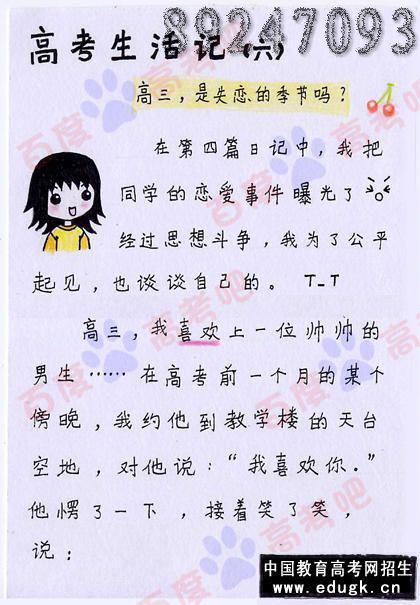 89247093
高考生活记（六）
高三，是失恋的季节吗？
在第四篇日记中，我把
同学的恋爱事件曝光了
经过思想斗争，我为了公平
起见，也谈谈自己的。T_T
高三，我喜欢上一位帅帅的
男生……在高考前一个月的某个
傍晚，我约他到教学楼的天台
空地，对他说：“我喜欢你。”
他愣了一下，接着笑了笑，
说：
百度 高考吧
百度 高考吧
百度 高考吧
中国教育高考网招生
www.edugk.cn